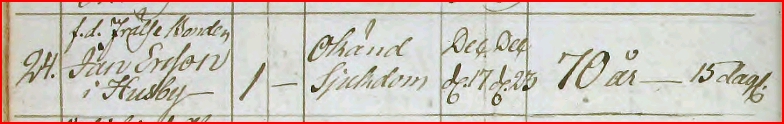 24. f.d. Frälse Bonden
Jan Ersson
i Husby 1 — Okänd
Sjukdom Dec. Dec.
d. 17 d. 23 70 år — 15 dag.